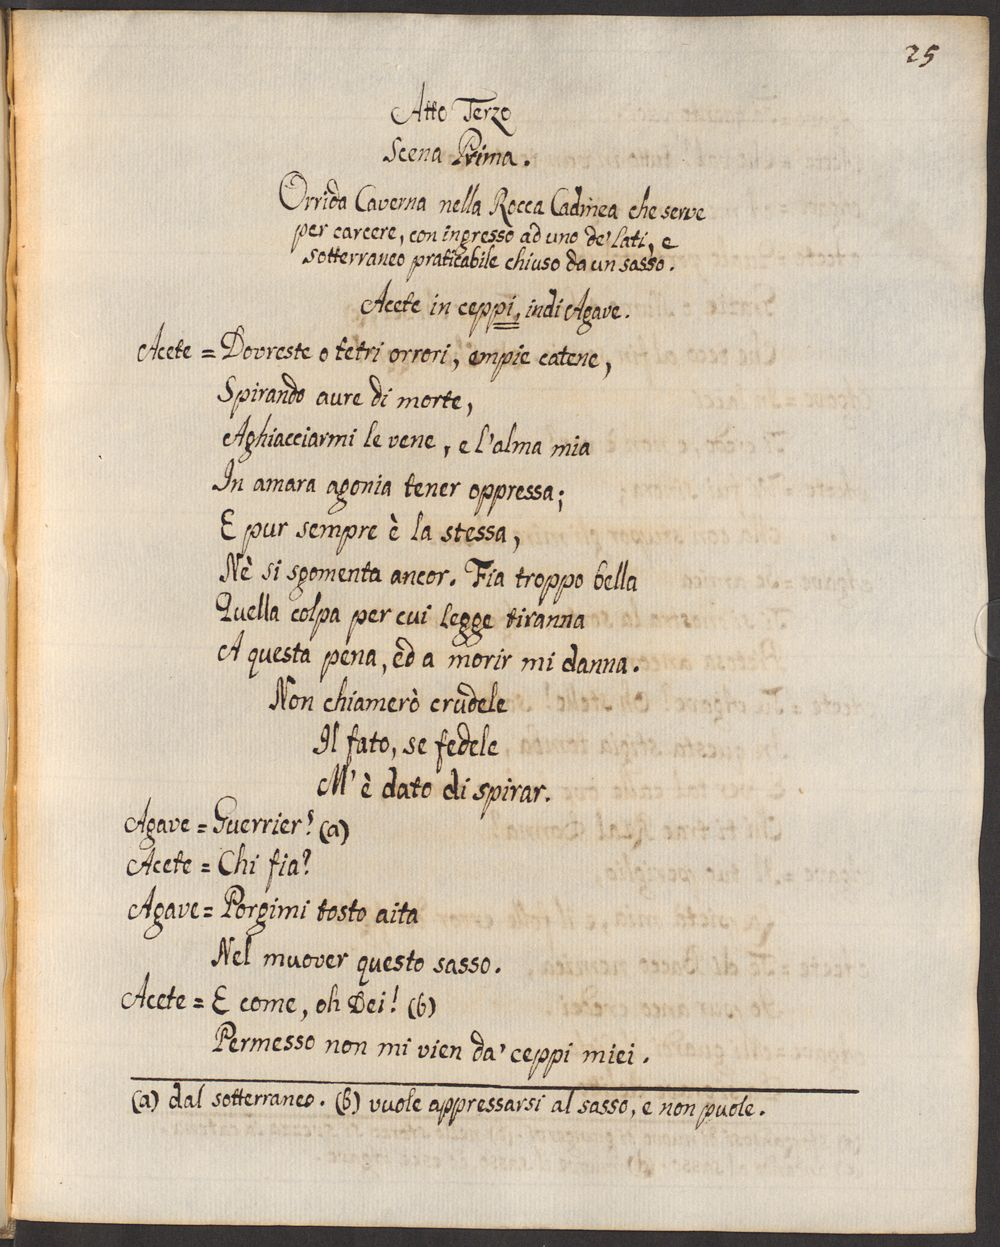 25
Atto Terzo
Scena Prima.
Orrida Caverna nella Rocca Cadmea che serve
per carcere, con ingresso ad uno de' lati, e
sotterraneo praticabile chiuso da un sasso.
Acete in ceppi, indi Agave.
Acete = Dovreste o tetri orrori, empie catene,
Spirando aure di morte,
Aghiacciarmi le vene, e l'alma mia
In amara agonia tener oppressa;
E pur sempre è la stessa,
Nè si sgomenta ancor. Fia troppo bella
Quella colpa per cui legge tiranna
A questa pena, ed a morir mi danna.
Non chiamerò crudele
Il fato, se fedele
M'è dato di spirar.
Agave = Guerrier? (a)
Acete = Chi fia?
Agave = Porgimi tosto aita
Nel muover questo sasso.
Acete = E come, oh Dei! (b)
Permesso non mi vien da' ceppi miei.
(a) dal sotterraneo. (b) vuole appressarsi al sasso, e non puole.